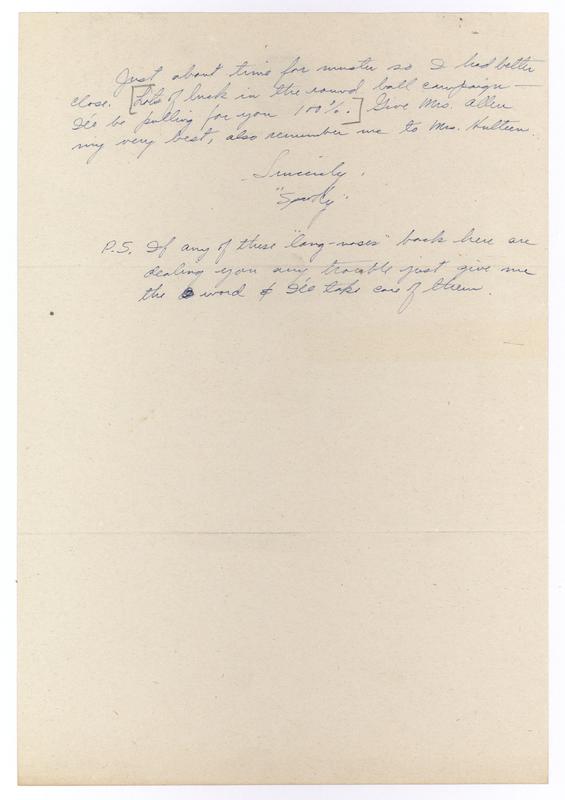 Just about time for muster so I had better
close. [Lots of luck in the round ball campaign —
I'll be pulling for you 100%.] Give Mrs. Allen
my very best, also remember me to Mrs. Hulteen.
Sincerely,
P.S. If any of these "long-noses" back here are
dealing you any trouble just give me
the word & I'll take care of them.